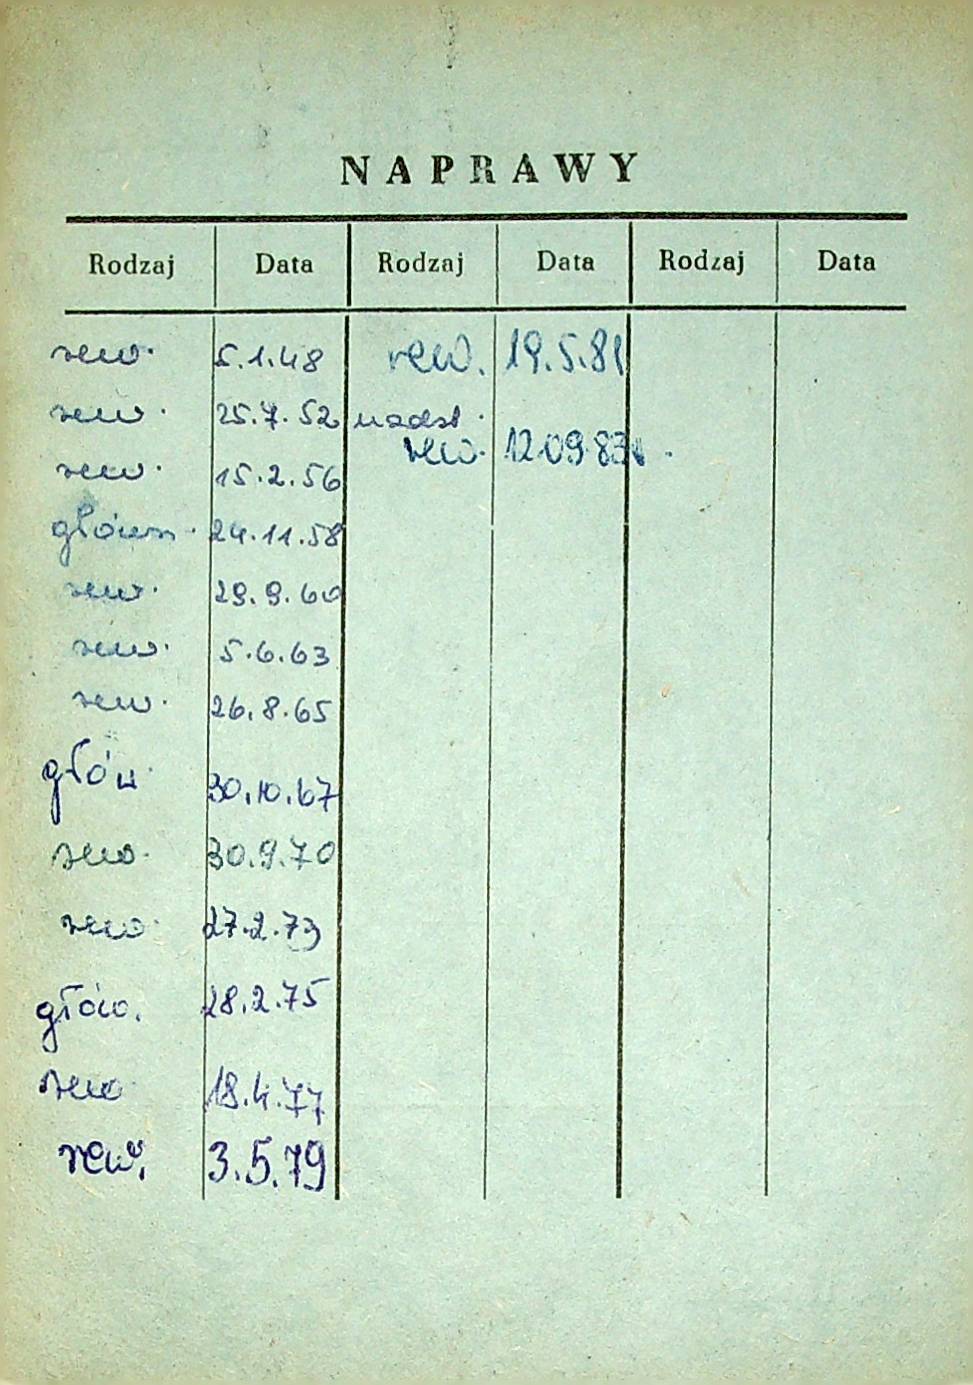 NAPRAWY
Rodzaj Data Rodzaj Data Rodzaj Data
rew. 5.1.48 rew. 19.5.81
rew. 25.7.52 nadst.
rew. 12.09.83r.
rew. 15.2.56
główn. 24.11.58
rew. 29.9.60
rew. 5.6.63
rew. 26.8.65
głów. 30.10.67
rew. 30.9.70
rew. 27.2.73
głów. 28.2.75
rew 18.4.77
rew. 3.5.79